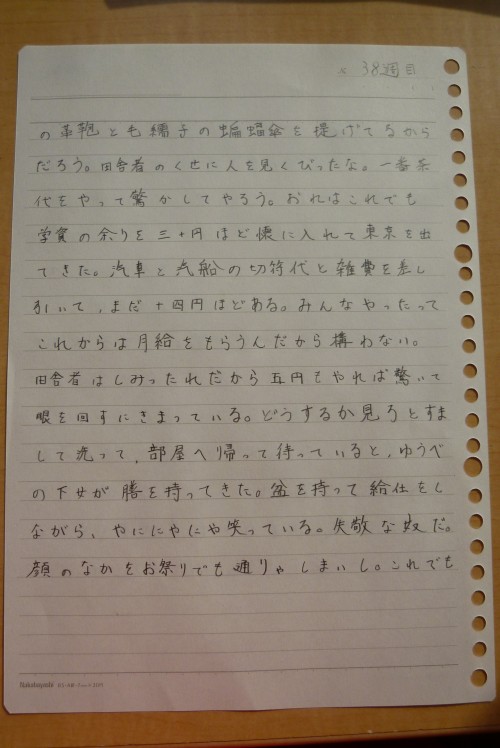 38週目
の革鞄と毛繻子の蝙蝠傘を提げてるから
だろう。田舎者のくせに人を見くびったな。一番茶
代をやって驚かしてやろう。おれはこれでも
学資の余りを三十円ほど懐に入れて東京を出
てきた。汽車と汽船の切符代と雑費を差し
引いて、まだ十四円ほどある。みんなやったって
これからは月給をもらうんだから構わない。
田舎者はしみったれだから五円もやれば驚いて
眼を回すにきまっている。どうするか見ろとすま
して洗って、部屋へ帰って待っていると、ゆうべ
の下女が膳を持ってきた。盆を持って給仕をし
ながら、やににやにや笑っている。失敬な奴だ。
顔のなかをお祭りでも通りゃしまいし。これでも
Nakabayashi